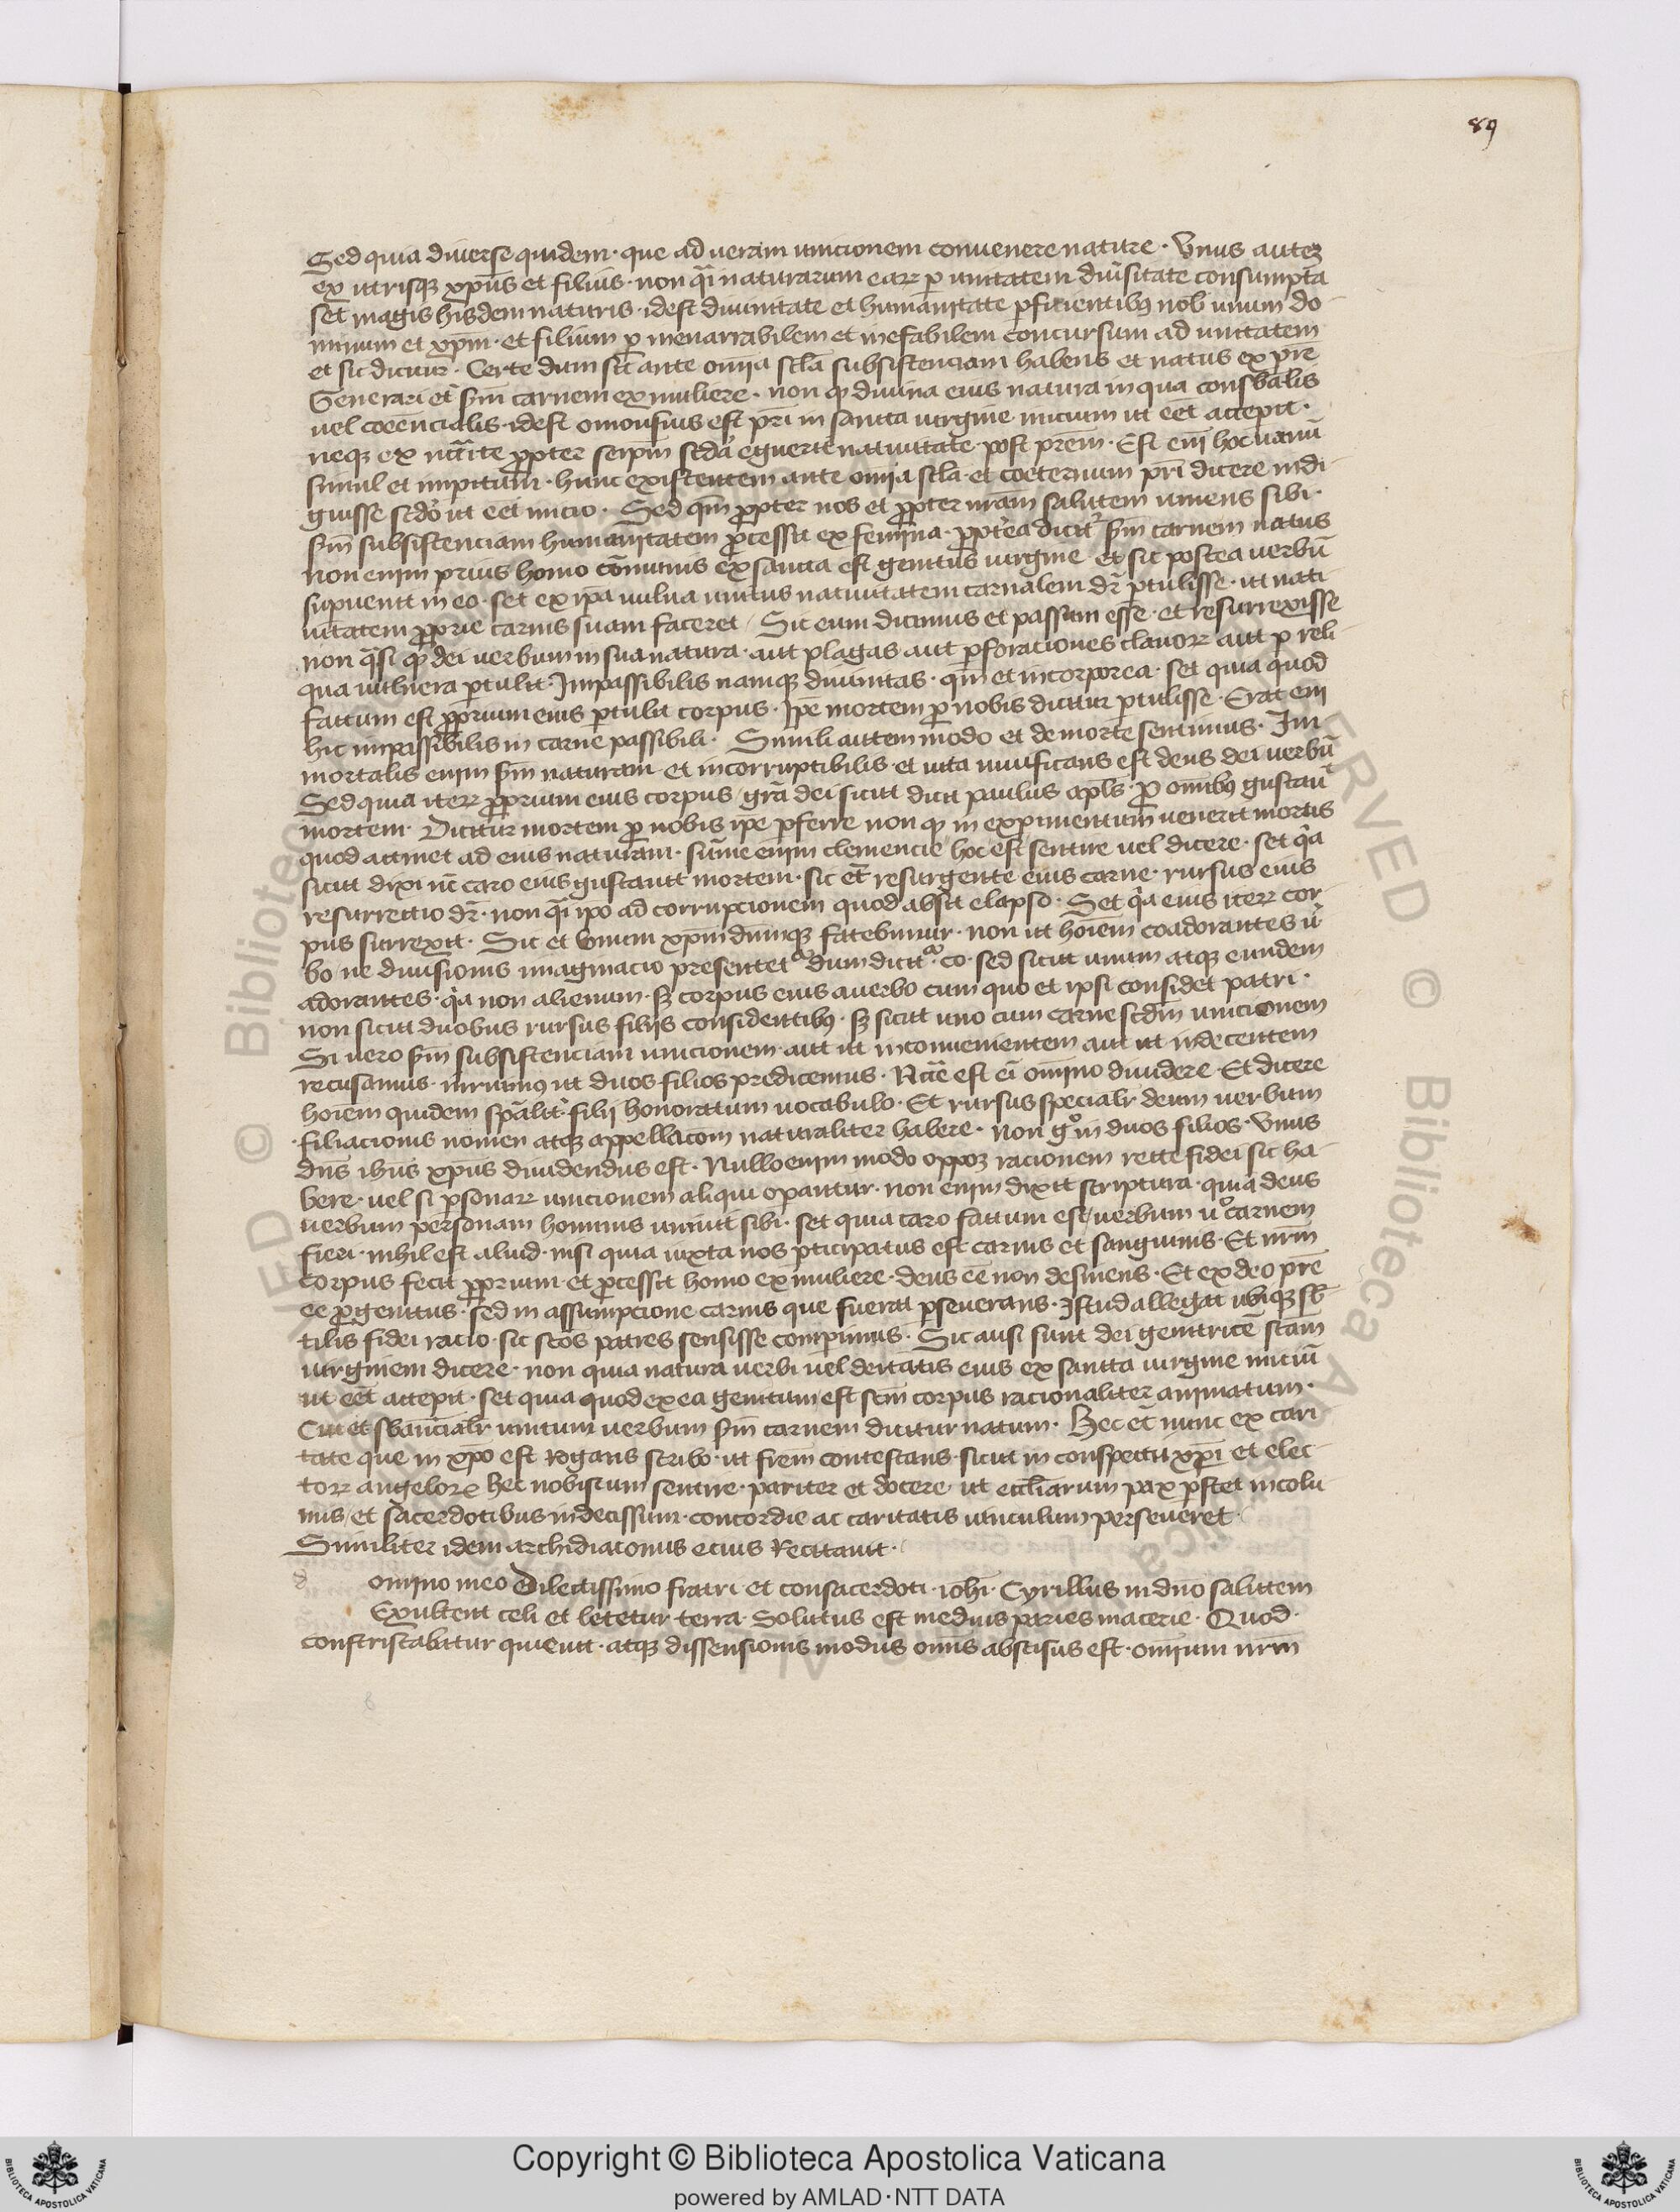 89
Sed quia diuerse quidem · que ad ueram unicionem conuenere nature · Vnus autez
ex utrisqz xp̄us et filius · non q̄i naturarum earꝝ ꝑ unitatem diūsitate consumpta
set magis hisdem naturis · idest diuinitate et humanitate ꝑficientibꝰ nob̄ unum do
minum et xp̄m · et filium ꝑ inenarrabilem et inefabilem concursum ad unitatem
et sic dicitur · Certe dum sit ante om̄ia scl̄a subsistenciam habens et natus ex pr̄e
Generari et sm̄ carnem ex muliere · non ꝙ diuina eius natura in qua consb̄alis
uel coēncialis · idest omousius est pr̄i in sancta uirgine inicium ut eēt accepit ·
neqz ex ncītate ꝓpter seip̄m scd̄a eguerit natiuitate · post pr̄em · Est em̄ hoc uanū
simul et imperitum · hunc existentem ante om̄ia scl̄a · et coeternum pr̄i dicere indi
guisse scd̄o ut eēt inicio · Sed qm̄ ꝓpter nos et ꝓpter nr̄am salutem uniens sibi ·
sm̄ subsistenciam humanitatem ꝓcessit ex femina · ꝓpterea dicitᷣ sm̄ carnem natus
non enim prius homo cōmunis ex sancta est genitus uirgine et sic postea uerbū
supuenit in eo · set ex ip̄a uulua unitus natiuitatem carnalem dr̄ ꝑtulisse · ut nati
uitatem ꝓprie carnis suam faceret / Sic eum dicimus et passum esse · et resurrexisse
non q̄si ꝙ dei uerbum in sua natura · aut plagas aut ꝑforationes clauorꝝ aut ꝑ reli
qua uulnera ꝑtulit · Impassibilis namqz diuinitas · qm̄ et incorporea · set quia quod
factum est ꝓprium eius ꝑtulit corpus · Ip̄e mortem ꝓ nobis dicitur ꝑtulisse · Erat em̄
hic impassibilis in carne passibili · Simili autem modo et de morte sentimus · Im
mortalis enim sm̄ naturam et incorruptibilis · et uita uiuificans est deus dei uerbū
Sed quia iterꝝ ꝓprium eius corpus / gr̄a dei sicut dicit paulus apl̄s · ꝓ om̄ibꝰ gustauᷣ
mortem · Dicitur mortem ꝓ nobis ip̄e ꝑferre non ꝙ in experimentum uenerit mortis
quod attinet ad eius naturam · sum̄e enim clemencie hoc est sentire uel dicere · set q̓a
sicut dixi nc̄ caro eius gustauit mortem · sic et̄ resurgente eius carne · rursus eius
resurrectio dr̄ · non q̄i ip̄o ad corrupcionem quod absit elapso · Set q̓a eius iterꝝ cor
pus surrexit · Sic et Vnum xp̄m dn̄mqz fatebimur · non ut hoīem coadorantes ū
bo / ne diuisionis imaginacio presentetᷣ dum dicitᷣ · co · sed sicut unum atqz eundem
adorantes · q̓a non alienum · sꝫ corpus eius a uerbo cum quo et ipsi considet patri ·
non sicut duobus rursus filijs considentibꝰ · sꝫ sicut uno cum carne scd̄m unicionem
Si uero sm̄ subsistenciam unicionem · aut ut inconuenientem aut ut indecentem
recusamus · incurrimꝰ ut duos filios predicemus · Ncē est ei om̄ino diuidere · Et dicere
hoīem quidem spālit̓ filij honoratum uocabulo · Et rursus specialr̄ deum uerbum
filiacionis nomen atqz appellac̄om naturaliter habere · Non gͦ in duos filios · Vnus
dn̄s ih̄us xp̄us diuidendus est · Nullo enim modo oppoꝫ racionem recte fidei sic ha
bere · uel si ꝑsonarꝝ unicionem aliqui opantur · non enim dixit scriptura · quia deus
uerbum personam hominis uniuit sibi · set quia caro factum est / uerbum uͦ carnem
fieri · nihil est aliud · nisi quia iuxta nos ꝑticipatus est carnis et sanguinis · Et nr̄m
corpus fecit ꝓprium · et ꝓcessit homo ex muliere · deus eē non desinens · Et ex deo pr̄e
eē ꝓgenitus · sed in assumpcione carnis que fuerat ꝑseuerans · Istud allegat ubiqz sb̄
tilis fidei racio · sic sc̄os patres sensisse comperimus · Sic ausi sunt dei genitricē sc̄am
uirginem dicere · non quia natura uerbi uel deitatis eius ex sancta uirgine iniciū
ut eēt accepit · set quia quod ex ea genitum est scm̄ corpus racionaliter animatum ·
Cui et sb̄ancialr̄ unitum uerbum sm̄ carnem dicitur natum · Hec et̄ nunc ex cari
tate que in xp̄o est rogans scribo · ut frēm contestans · sicut in conspectu xp̄i et elec
torꝝ angelorꝝ hec nobiscum sentire · pariter et docere · ut eccl̄iarum pax ꝑstet incolu
mis / et sacerdotibus indecissum · concordie ac caritatis uinculum perseueret ·
Similiter idem archidiaconus ecius Recitauit ·
d omino meo Dilectissimo fratri et consacerdoti · ioh̄i · Cyrillus in dn̄o salutem
Exultent celi et letetur terra · Solutus est medius paries macerie · Quod ·
constristabatur quieuit · atqz dissensionis modus om̄is abscisus est · omnium nr̄m
Copyright © Biblioteca Apostolica Vaticana
powered by AMLAD·NTT DATA